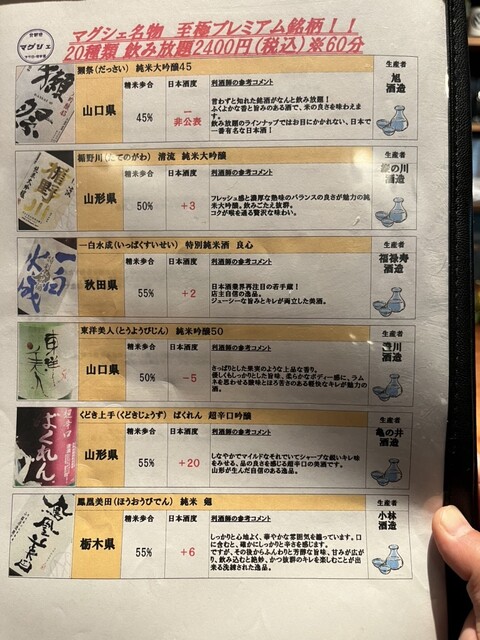 居酒屋
マグシェ
マグシェ名物 至極プレミアム銘柄！！
20種類 飲み放題2400円(税込)※60分
獺祭(だっさい) 純米大吟醸45
生産者
旭
酒造
獺祭
山口県
精米歩合
45%
日本酒度
ー
非公表
利酒師の参考コメント
言わずと知れた銘酒がなんと飲み放題！
ふくよかな香と旨みのある酒で、米の良さを味わえます。
飲み放題のラインナップではお目にかかれない、日本で一番有名な日本酒！
楯野川(たてのがわ) 清流 純米大吟醸
生産者
楯の川
酒造
楯野川
山形県
精米歩合
50%
日本酒度
+3
利酒師の参考コメント
フレッシュ感と濃厚な熟味のバランスの良さが魅力の純米大吟醸。飲みごたえ抜群。
コクが喉を通る贅沢な味わい。
一白水成(いっぱくすいせい) 特別純米酒 良心
生産者
福禄寿
酒造
一白水成
秋田県
精米歩合
55%
日本酒度
+2
利酒師の参考コメント
日本酒業界再注目の若手蔵！
店主自信の逸品。
ジューシーな旨みとキレが両立した美酒。
東洋美人(とうようびじん) 純米吟醸50
生産者
澄川
酒造
東洋美人
山口県
精米歩合
50%
日本酒度
-5
利酒師の参考コメント
さっぱりとした果実のような上品な香り。
優しくもしっかりとした旨味、柔らかなボディー感に、ラムネを思わせる酸味とほろ苦さのある軽快なキレが魅力の酒。
くどき上手(くどきじょうず) ばくれん 超辛口吟醸
生産者
亀の井
酒造
超辛口
ばくれん
山形県
精米歩合
55%
日本酒度
+20
利酒師の参考コメント
しなやかでマイルドなそれでいてシャープな鋭いキレ味をみせる、品の良さを感じる超辛口の美酒です。
山形が生んだ自信のある逸品。
鳳凰美田(ほうおうびでん) 純米
生産者
小林
酒造
鳳凰美田
栃木県
精米歩合
55%
日本酒度
+6
利酒師の参考コメント
しっかりと心地よく、華やかな雰囲気を纏っています。口に含むと、確かにしっかりと辛さを感じます。
ですが、その後からふんわりと芳醇な旨味、甘みが広がり、飲み込むと絶妙、かつ抜群のキレを楽しむことが出来る洗練された逸品。